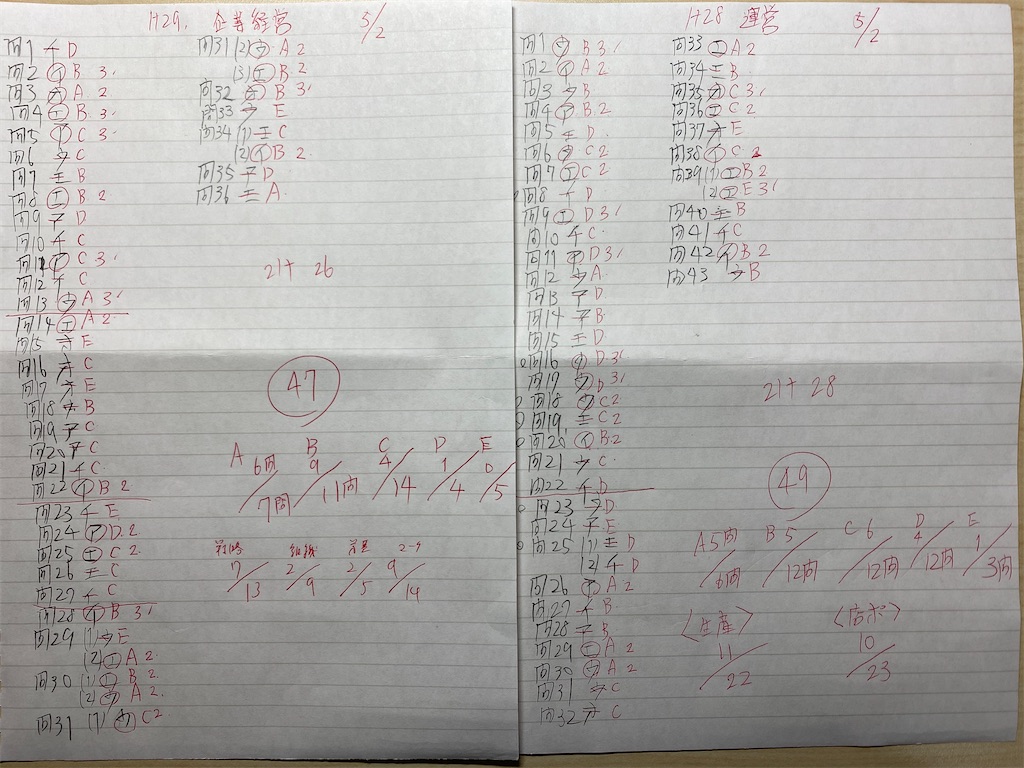 H29. 企業経営 5/2
問1 イ D
問2 イ B 3'
問3 オ A 2
問4 エ B 3'
問5 イ C 3'
問6 ウ C
問7 エ B
問8 エ B 2
問9 ア D
問10 イ C
問11 イ C 3'
問12 イ C
問13 ウ A 3'
問14 エ A 2
問15 オ E
問16 オ C
問17 オ E
問18 オ B
問19 ア C
問20 ア C
問21 イ C
問22 イ B 2
問23 イ E
問24 ア D 2
問25 エ C 2
問26 エ C
問27 イ C
問28 イ B 3'
問29 (1) ウ E
(2) エ A 2
問30 (1) エ B 2
(2) ウ A 2
問31 (1) ウ C 2
問31 (2) ウ A 2
(3) エ B 2
問32 オ B 3'
問33 ウ E
問34 (1) エ C
(2) イ B 2
問35 ア D
問36 エ A
21+ 26
47
A 6問/7問 B 9/11問 C 4/14 D 1/4 E 0/5
戦略 7/13 組織 2/9 2/5 9/14
H28 運営 5/2
問1 ウ B 3'
問2 イ A 2
問3 ウ B
問4 イ B 2
問5 エ D
問6 ウ C 2
問7 エ C 2
問8 イ D
問9 エ D 3'
問10 イ C
問11 ア D 3'
問12 ウ A
問13 ア D
問14 ア B
問15 エ D
問16 イ D 3'
問17 ウ D 3'
問18 ウ C 2
問19 エ C 2
問20 イ B 2
問21 ウ C
問22 イ D
問23 ウ D
問24 ア E
問25 (1) エ D
(2) イ D
問26 ア A 2
問27 イ B
問28 ア B
問29 エ A 2
問30 ウ A 2
問31 ウ C
問32 オ C
問33 エ A 2
問34 エ B
問35 オ C 3'
問36 エ C 2
問37 オ E
問38 イ C 2
問39 (1) エ B 2
(2) エ E 3'
問40 エ B
問41 イ C
問42 イ B 2
問43 ウ B
21+ 28
49
A 5問/6問 B 5/12問 C 6/12問 D 4/12問 E 1/3問
〈生産〉 〈店ポ〉
11/22 10/23